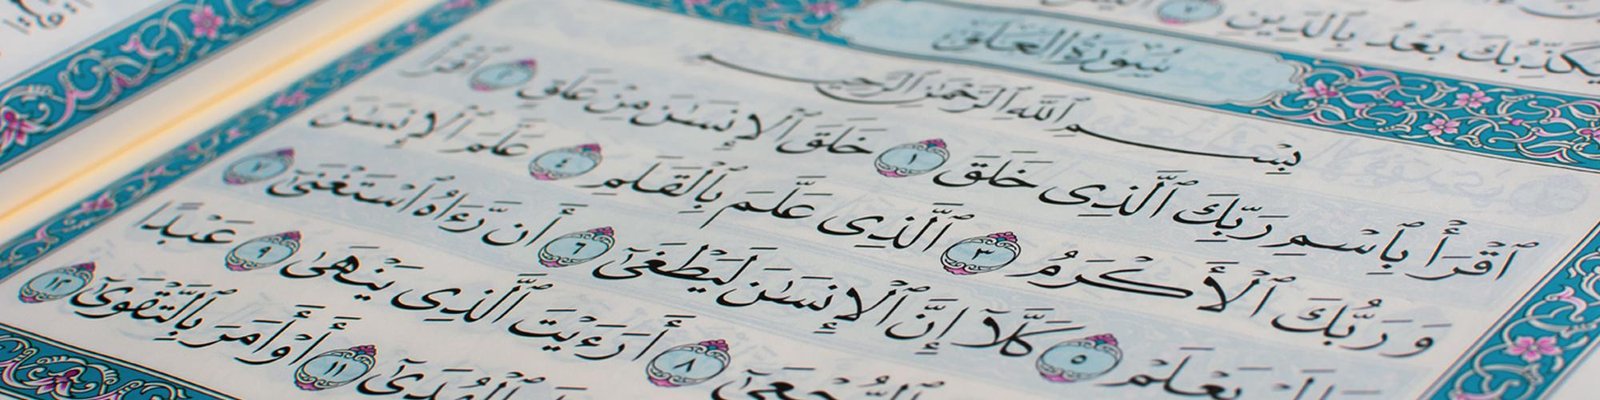 يُكَذِّبُكَ بَعْدُ بِٱلدِّينِ ٧
سُورَةُ العَلَقِ
بِسْمِ ٱللَّهِ ٱلرَّحْمَٰنِ ٱلرَّحِيمِ
ٱقْرَأْ بِٱسْمِ رَبِّكَ ٱلَّذِى خَلَقَ ١ خَلَقَ ٱلْإِنسَٰنَ مِنْ عَلَقٍ ٢ ٱقْرَأْ
وَرَبُّكَ ٱلْأَكْرَمُ ٣ ٱلَّذِى عَلَّمَ بِٱلْقَلَمِ ٤ عَلَّمَ ٱلْإِنسَٰنَ
لَمْ يَعْلَمْ ٥ كَلَّآ إِنَّ ٱلْإِنسَٰنَ لَيَطْغَىٰٓ ٦ أَن رَّءَاهُ ٱسْتَغْنَىٰٓ ٧
ٱلرُّجْعَىٰٓ ٨ أَرَءَيْتَ ٱلَّذِى يَنْهَىٰ ٩ عَبْدًا
ٱلْهُدَىٰٓ ١١ أَوْ أَمَرَ بِٱلتَّقْوَىٰٓ ١٢